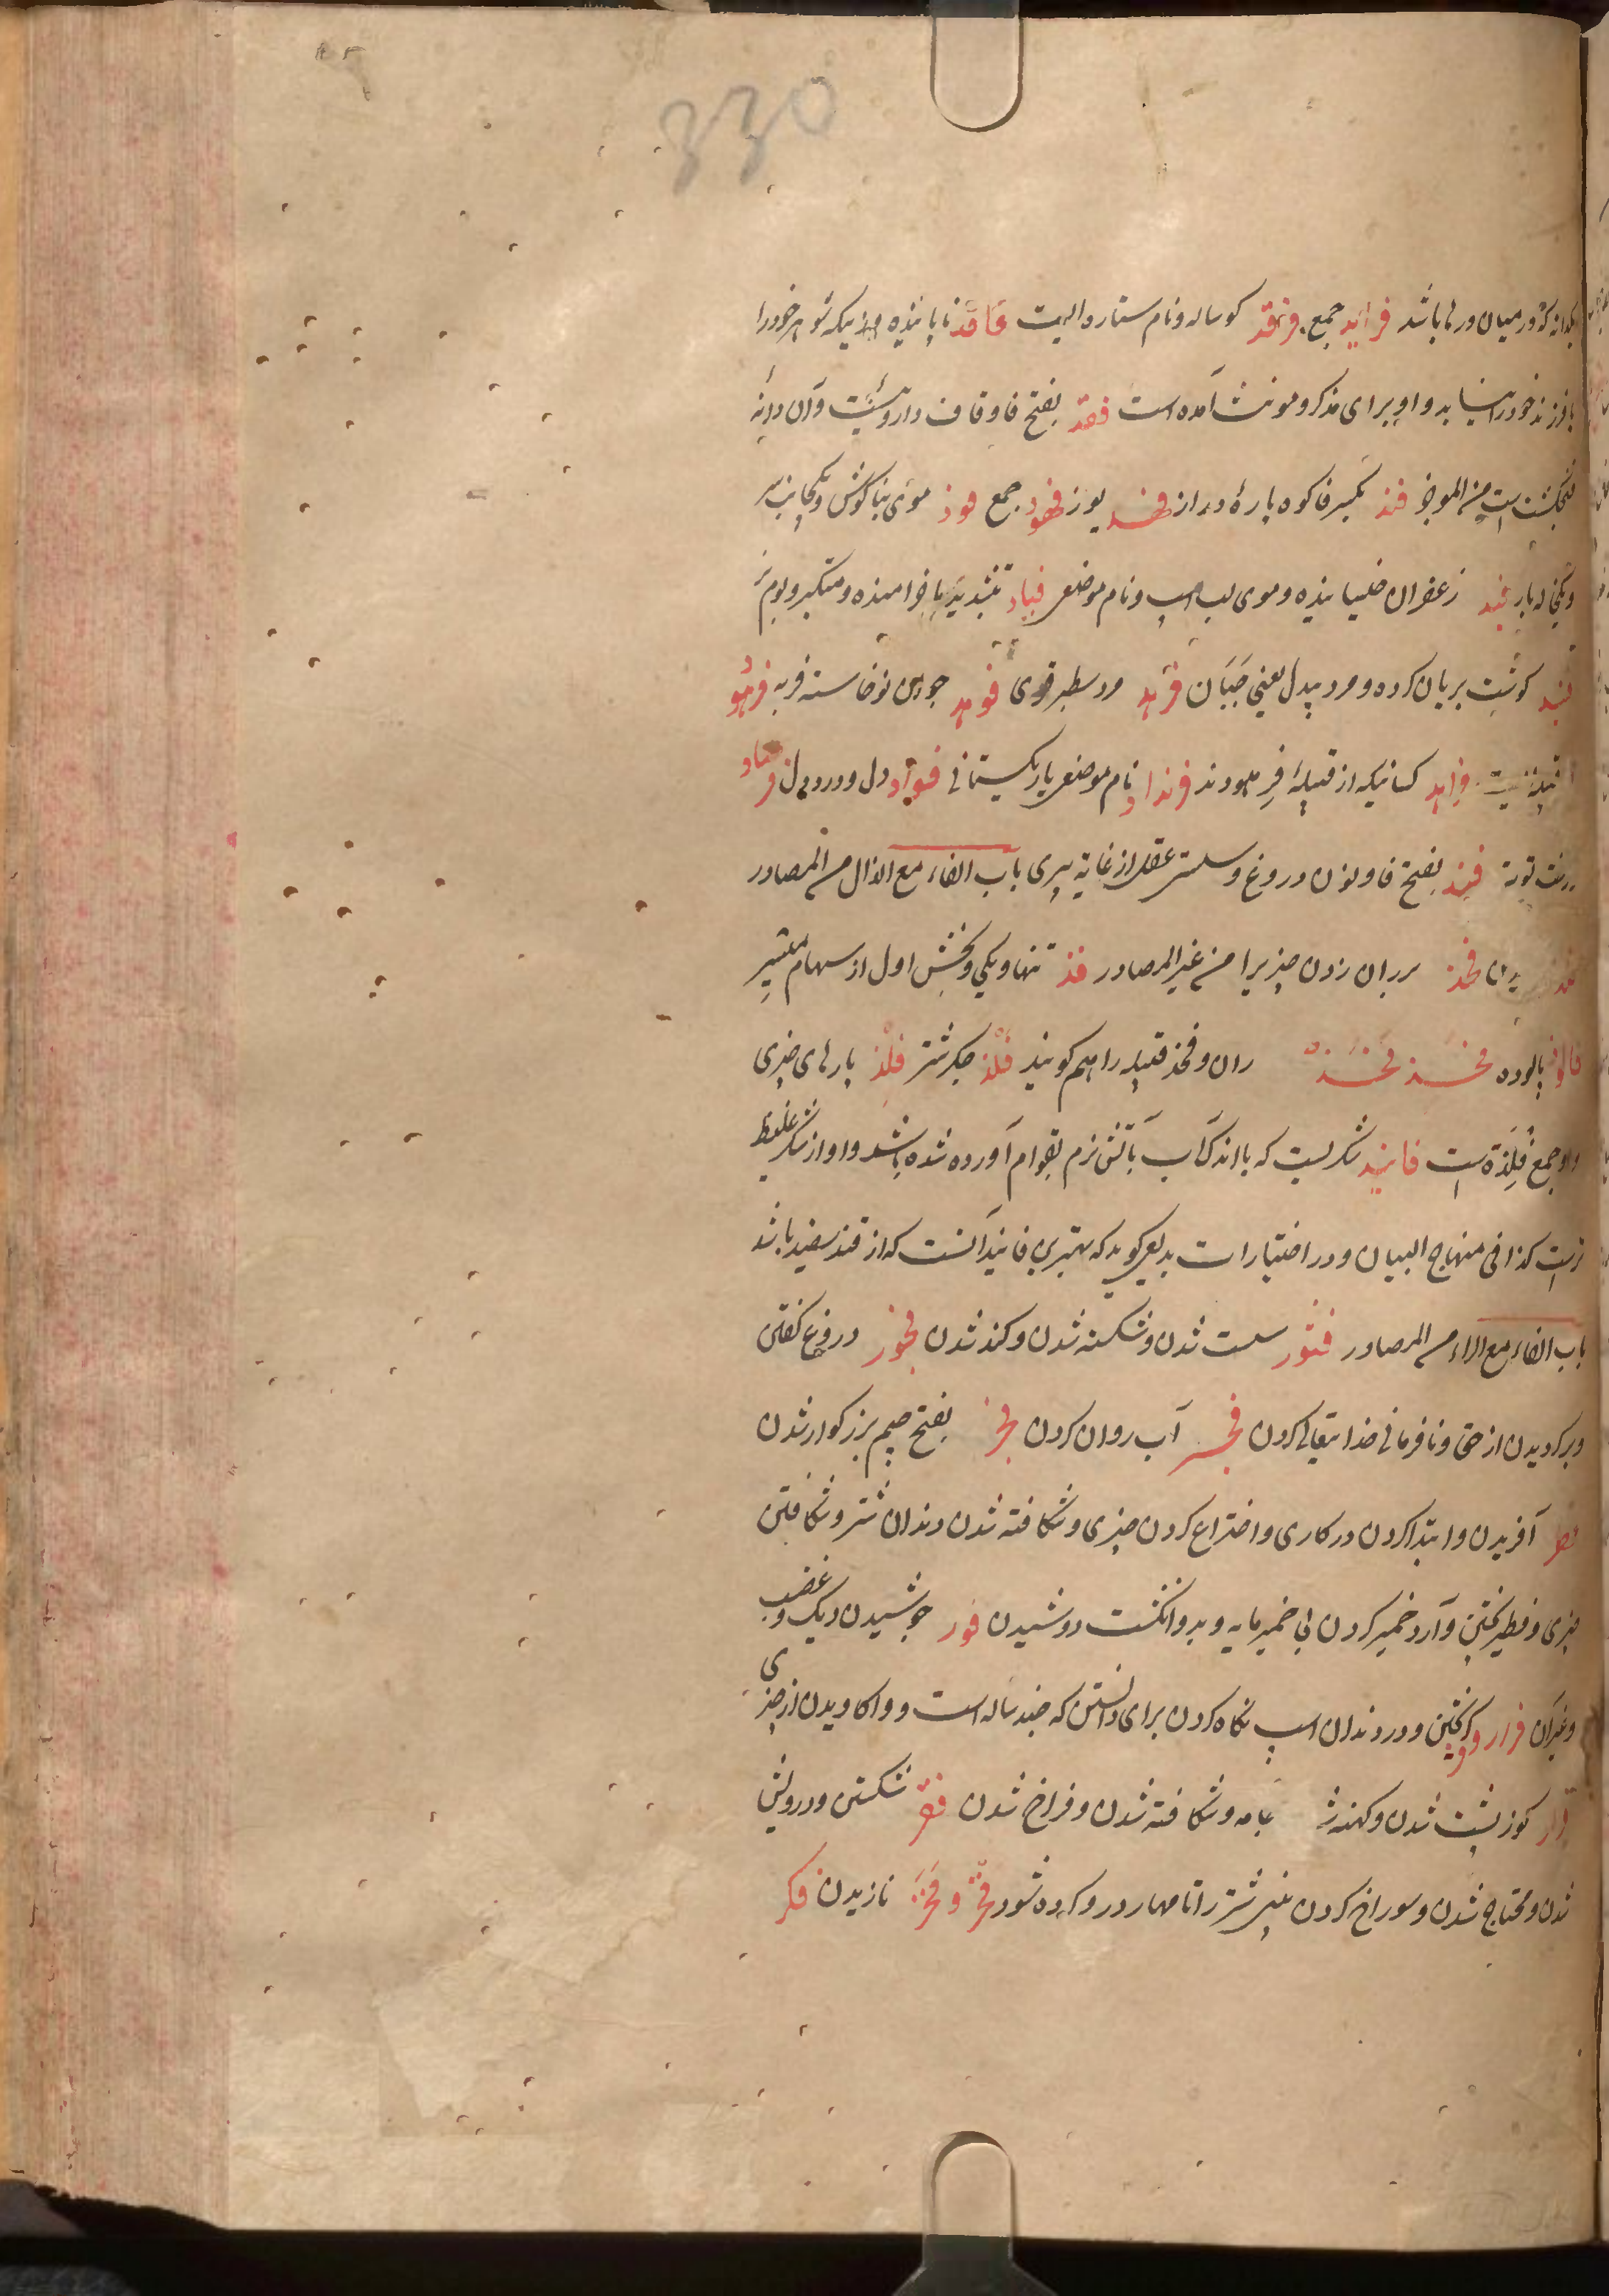 330
یکدانه که در میان درها باشد فراید جمع فرقد کوساله و نام ستاره الیت فاقد نایابنده و زنیکه شوهر خود را
یا فرزند خود را نیابد و او برای مذکر و مونث آمده است فقد بفتح فا و قاف داروئیست و آن دانه
فنجنکشت است من الموجز فند بکسر فا کوه پارهٔ دراز فهد یوز فهود جمع فود موی بناکوش و یکجانب سر
و یکجانه بار فید زعفران خیسانیده و موی لب اسپ و نام موضعی فیاد بتشدید یا خرامنده و متکبر و بوم نر
فئید کوشت بریان کرده و مرد بیدل یعنی جبان فرهد مرد سطبر قوی فوهد جوان نوخاسته فربه فرهو
قبیله ایست فراهید کسانیکه از قبیلهٔ فرهودند فرنداد نام موضعی یا ریکستانی فواد دل و درد دل فرصاد
درخت توت فند بفتح فا و نون دروغ و سستی عقل از غایة پیری باب الفاء مع الذال من المصادر
بریدن فخذ بر ران زدن چیزیرا من غیر المصادر فذ تنها و یکی و بخش اول از سهام میسر
فالوذ پالوده فخذ فخذ ران و فخذ قبیله را هم کویند فلذ جکر شتر فلذ پارهای چیزی
و او جمع فلذة است فانیذ شکریست که با اندک آب بآتش نرم بقوام آورده شده باشد و او از شکر غلیظ
تر است کذا فی منهاج البیان و در اختیارات بدیعی کوید که بهترین فانید آنست که از قند سفید باشد
باب الفاء مع الراء من المصادر فتور سست شدن و شکسته شدن و کند شدن فجور دروغ کفتن
و برکردیدن از حق و نافرمانی خدایتعالی کردن فجر آب روان کردن فجر بفتح جیم بزرکوار شدن
فطر آفریدن و ابتدا کردن در کاری و اختراع کردن چیزی و شکافته شدن دندان شتر و شکافتن
چیزی و فطیر پختن و آرد خمیر کردن بی خمیر مایه و بدو انکشت دوشیدن فور جوشیدن دیک و غضب
و غیر آن فرار و کریختن و در دندان اسپ نکاه کردن برای دانستن که چند ساله است و واکاویدن از چیزی
کوز پشت شدن و کهنه شد جامه و شکافته شدن و فراخ شدن فقر شکستن و درویش
شدن و محتاج شدن و سوراخ کردن بینی شتر را تا مهار در و کرده شود فخر و فخر نازیدن فکر